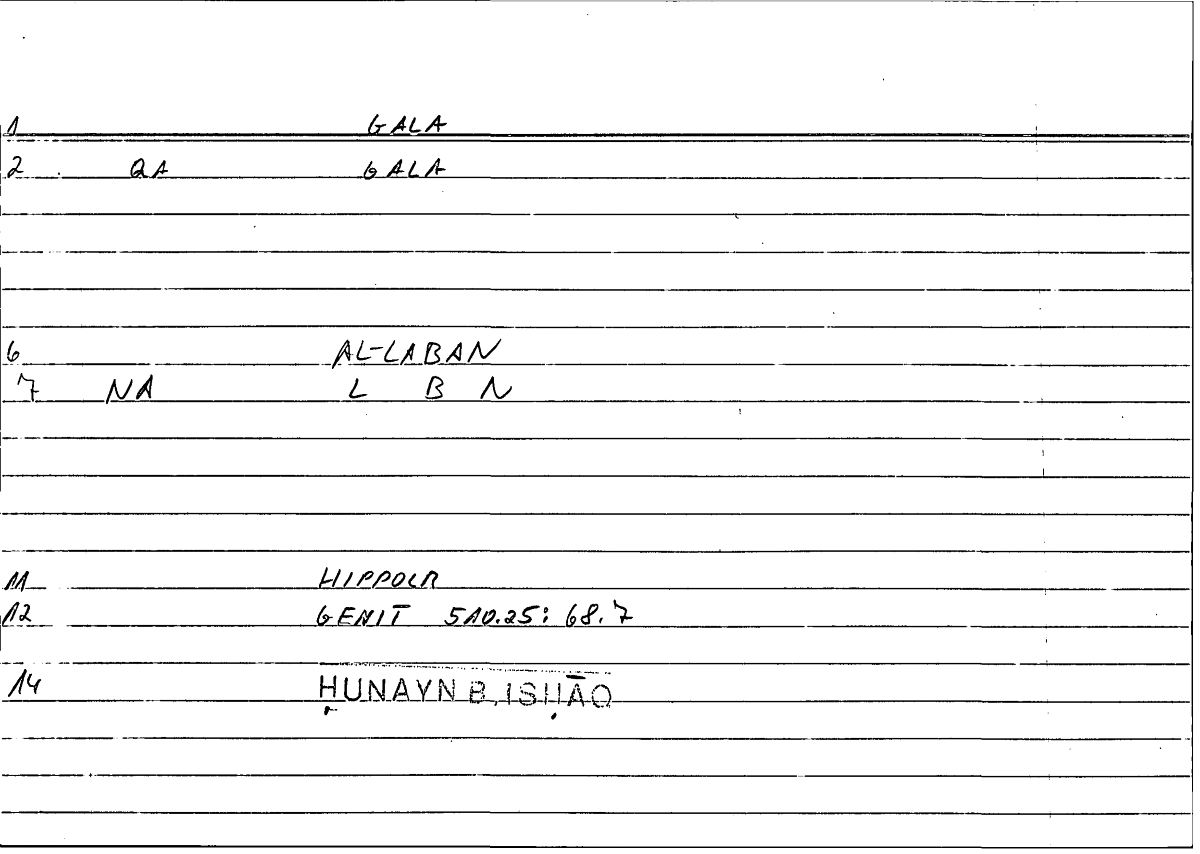 1 GALA
2 QA GALA
6 AL-LABAN
7 NA L B N
11 HIPPOCR
12 GENIT 510.25: 68.7
14 ḤUNAYN B. ISḤĀQ